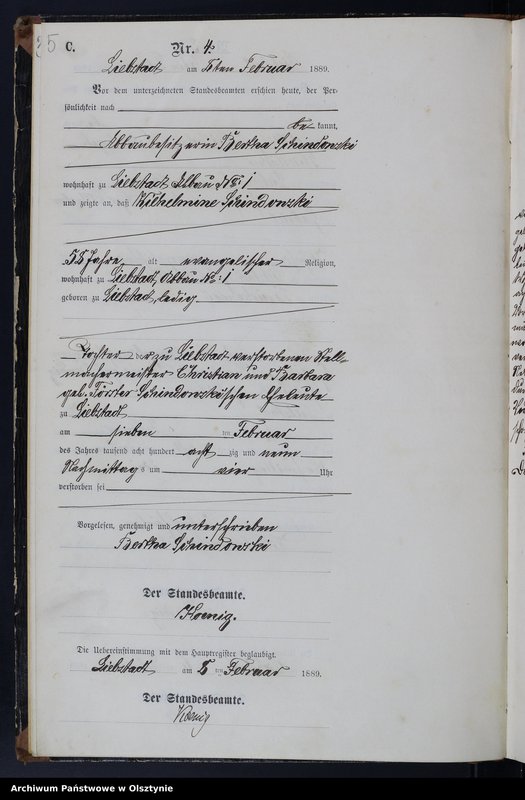 5
C.
Nr. 4.
Liebstadt am 8ten Februar 1889.
Vor dem unterzeichneten Standesbeamten erschien heute, der Per-
sönlichkeit nach
be kannt,
Abbaubesitzerin Bertha Schindowski
wohnhaft zu Liebstadt Abbau No: 1
und zeigte an, daß Wilhelmine Schindowski
58 Jahre alt evangelischer Religion,
wohnhaft zu Liebstadt, Abbau No: 1
geboren zu Liebstadt, ledig
Tochter der zu Liebstadt verstorbenen Stell-
machermeister Christian und Barbara
geb. Schindowski'schen Eheleute
zu Liebstadt
am sieben ten Februar
des Jahres tausend acht hundert acht zig und neun
Nachmittag s um vier Uhr
verstorben sei
Vorgelesen, genehmigt und unterschrieben
Bertha Schindowski
Der Standesbeamte.
Koenig.
Die Uebereinstimmung mit dem Hauptregister beglaubigt.
Liebstadt am 8 ten Februar 1889.
Der Standesbeamte.
Koenig
Archiwum Państwowe w Olsztynie